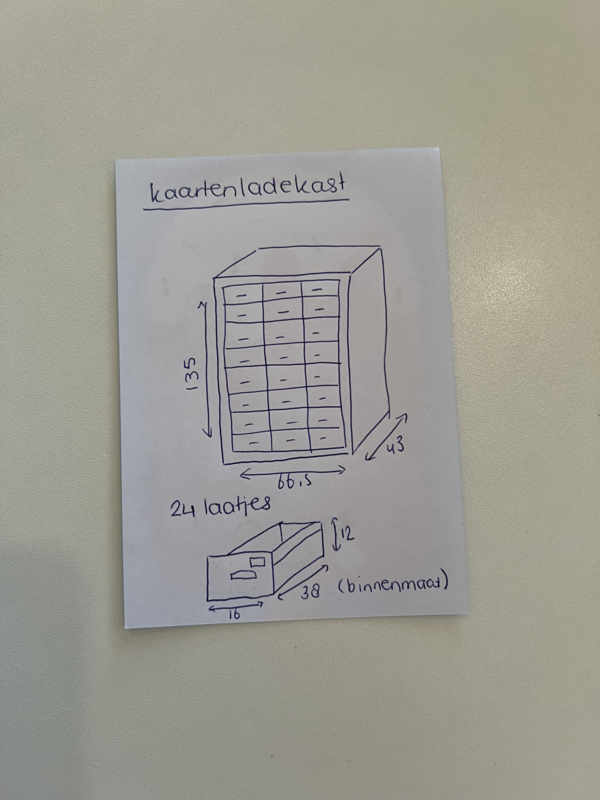 kaartenladekast
135
66,5
43
24 laatjes
12
38 (binnenmaat)
16